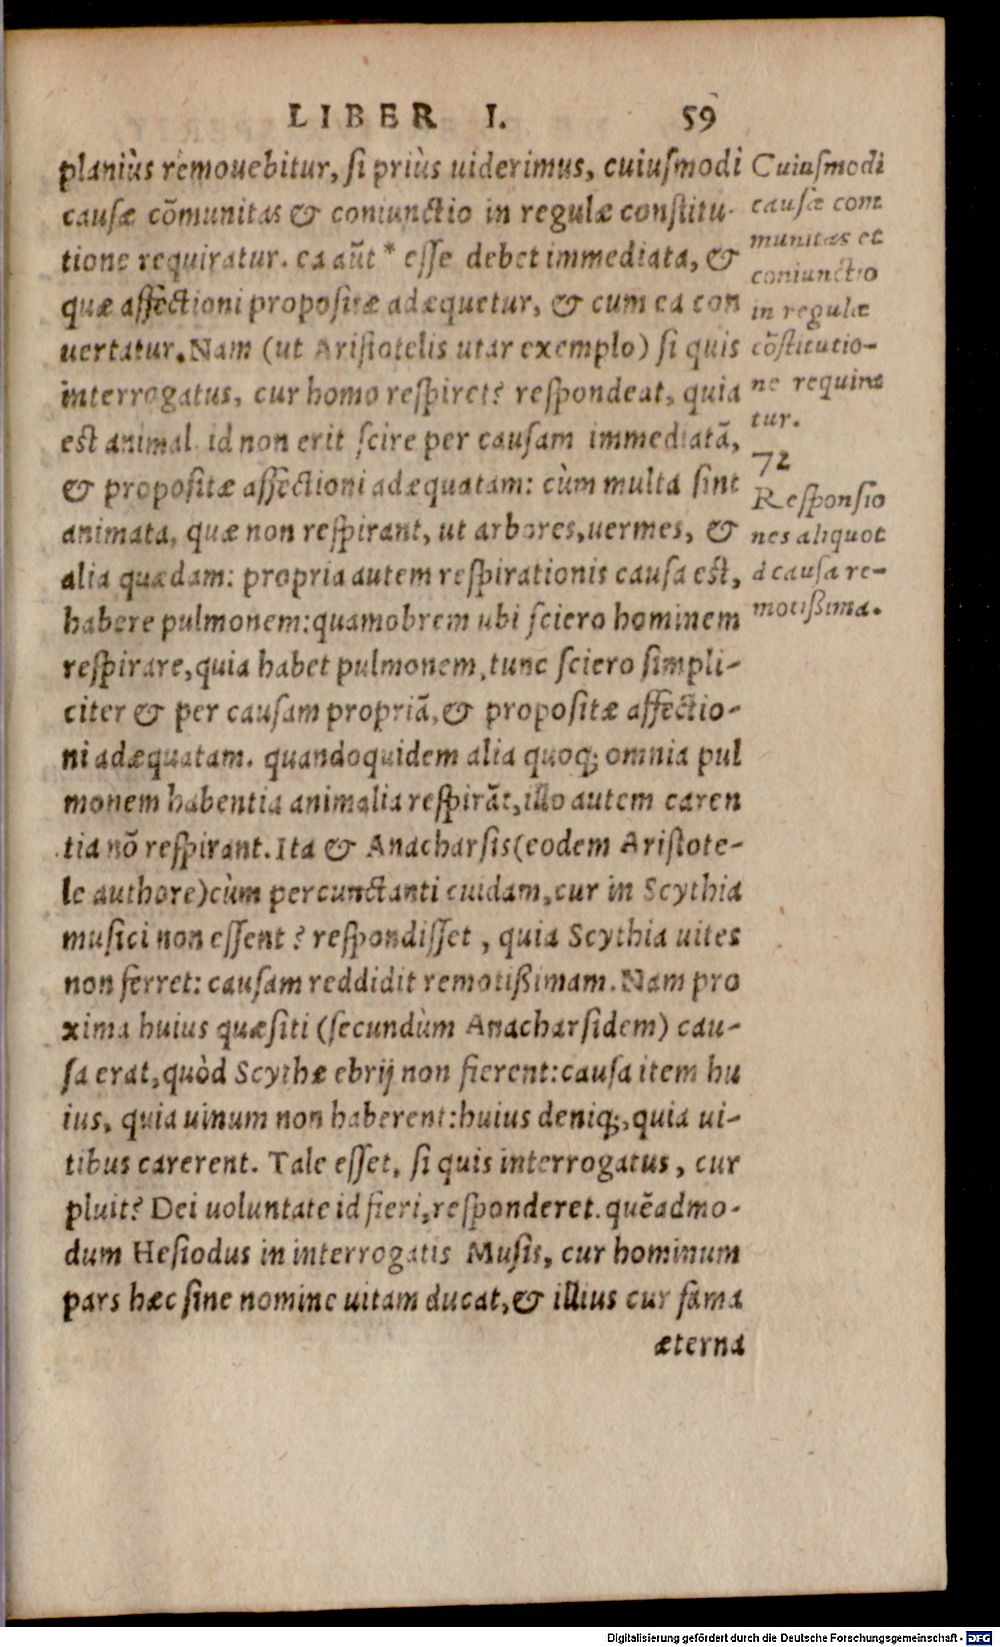 LIBER I. 59
planiùs remouebitur, si priùs uiderimus, cuiusmodi
causæ cõmunitas & coniunctio in regulæ constitu-
tione requiratur. ea aũt * esse debet immediata, &
quæ affectioni propositæ adæquetur, & cum ea con
uertatur. Nam (ut Aristotelis utar exemplo) si quis
interrogatus, cur homo respiret? respondeat, quia
est animal. id non erit scire per causam immediatã,
& propositæ affectioni adæquatam: cùm multa sint
animata, quæ non respirant, ut arbores, uermes, &
alia quædam: propria autem respirationis causa est,
habere pulmonem: quamobrem ubi sciero hominem
respirare, quia habet pulmonem, tunc sciero simpli-
citer & per causam propriã, & propositæ affectio-
ni adæquatam. quandoquidem alia quoq; omnia pul
monem habentia animalia respirãt, illo autem caren
tia nõ respirant. Ita & Anacharsis (eodem Aristote-
le authore) cùm percunctanti cuidam, cur in Scythia
musici non essent? respondisset, quia Scythia uites
non ferret: causam reddidit remotißimam. Nam pro
xima huius quæsiti (secundùm Anacharsidem) cau-
sa erat, quòd Scythæ ebrij non fierent: causa item hu
ius, quia uinum non haberent: huius deniq;, quia ui-
tibus carerent. Tale esset, si quis interrogatus, cur
pluit? Dei uoluntate id fieri, responderet. quẽadmo-
dum Hesiodus in interrogatis Musis, cur hominum
pars hæc sine nomine uitam ducat, & illius cur fama
æterna
Cuiusmodi
causæ com
munitas et
coniunctio
in regulæ
cõstitutio-
ne requira
tur.
72
Responsio
nes aliquot
à causa re-
motißima.
Digitalisierung gefördert durch die Deutsche Forschungsgemeinschaft - DFG